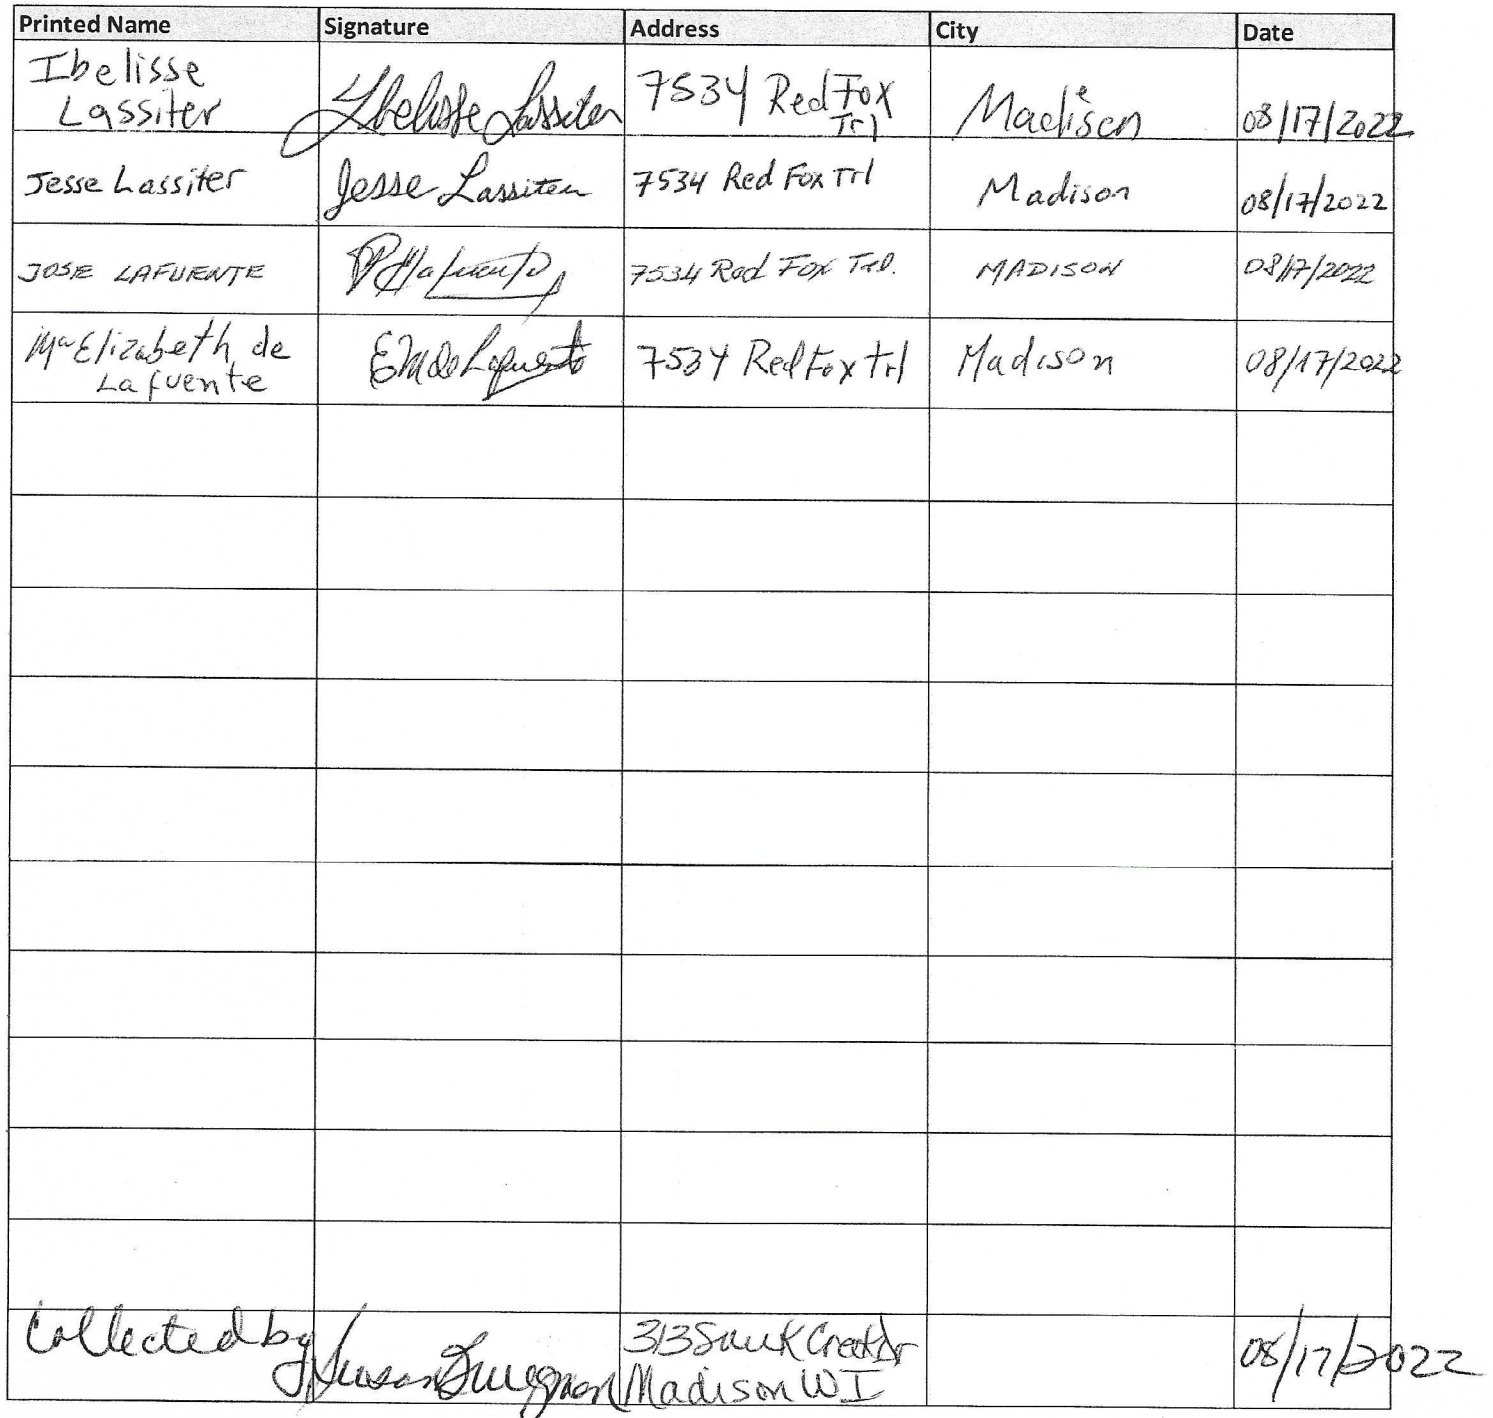 Printed Name Signature Address City Date
Ibelisse
Lassiter
Ibelisse Lassiter
7534 Red Fox
Trl
Madison
08/17/2022
Jesse Lassiter
Jesse Lassiter
7534 Red Fox Trl
Madison
08/17/2022
JOSE LAFUENTE
7534 Red Fox Trl.
MADISON
08/17/2022
Ma Elizabeth de
Lafuente
EM de Lafuente
7534 Red Fox Trl
Madison
08/17/2022
Collected by
Susan
313 Sauk Creek Dr
Madison WI
08/17/2022